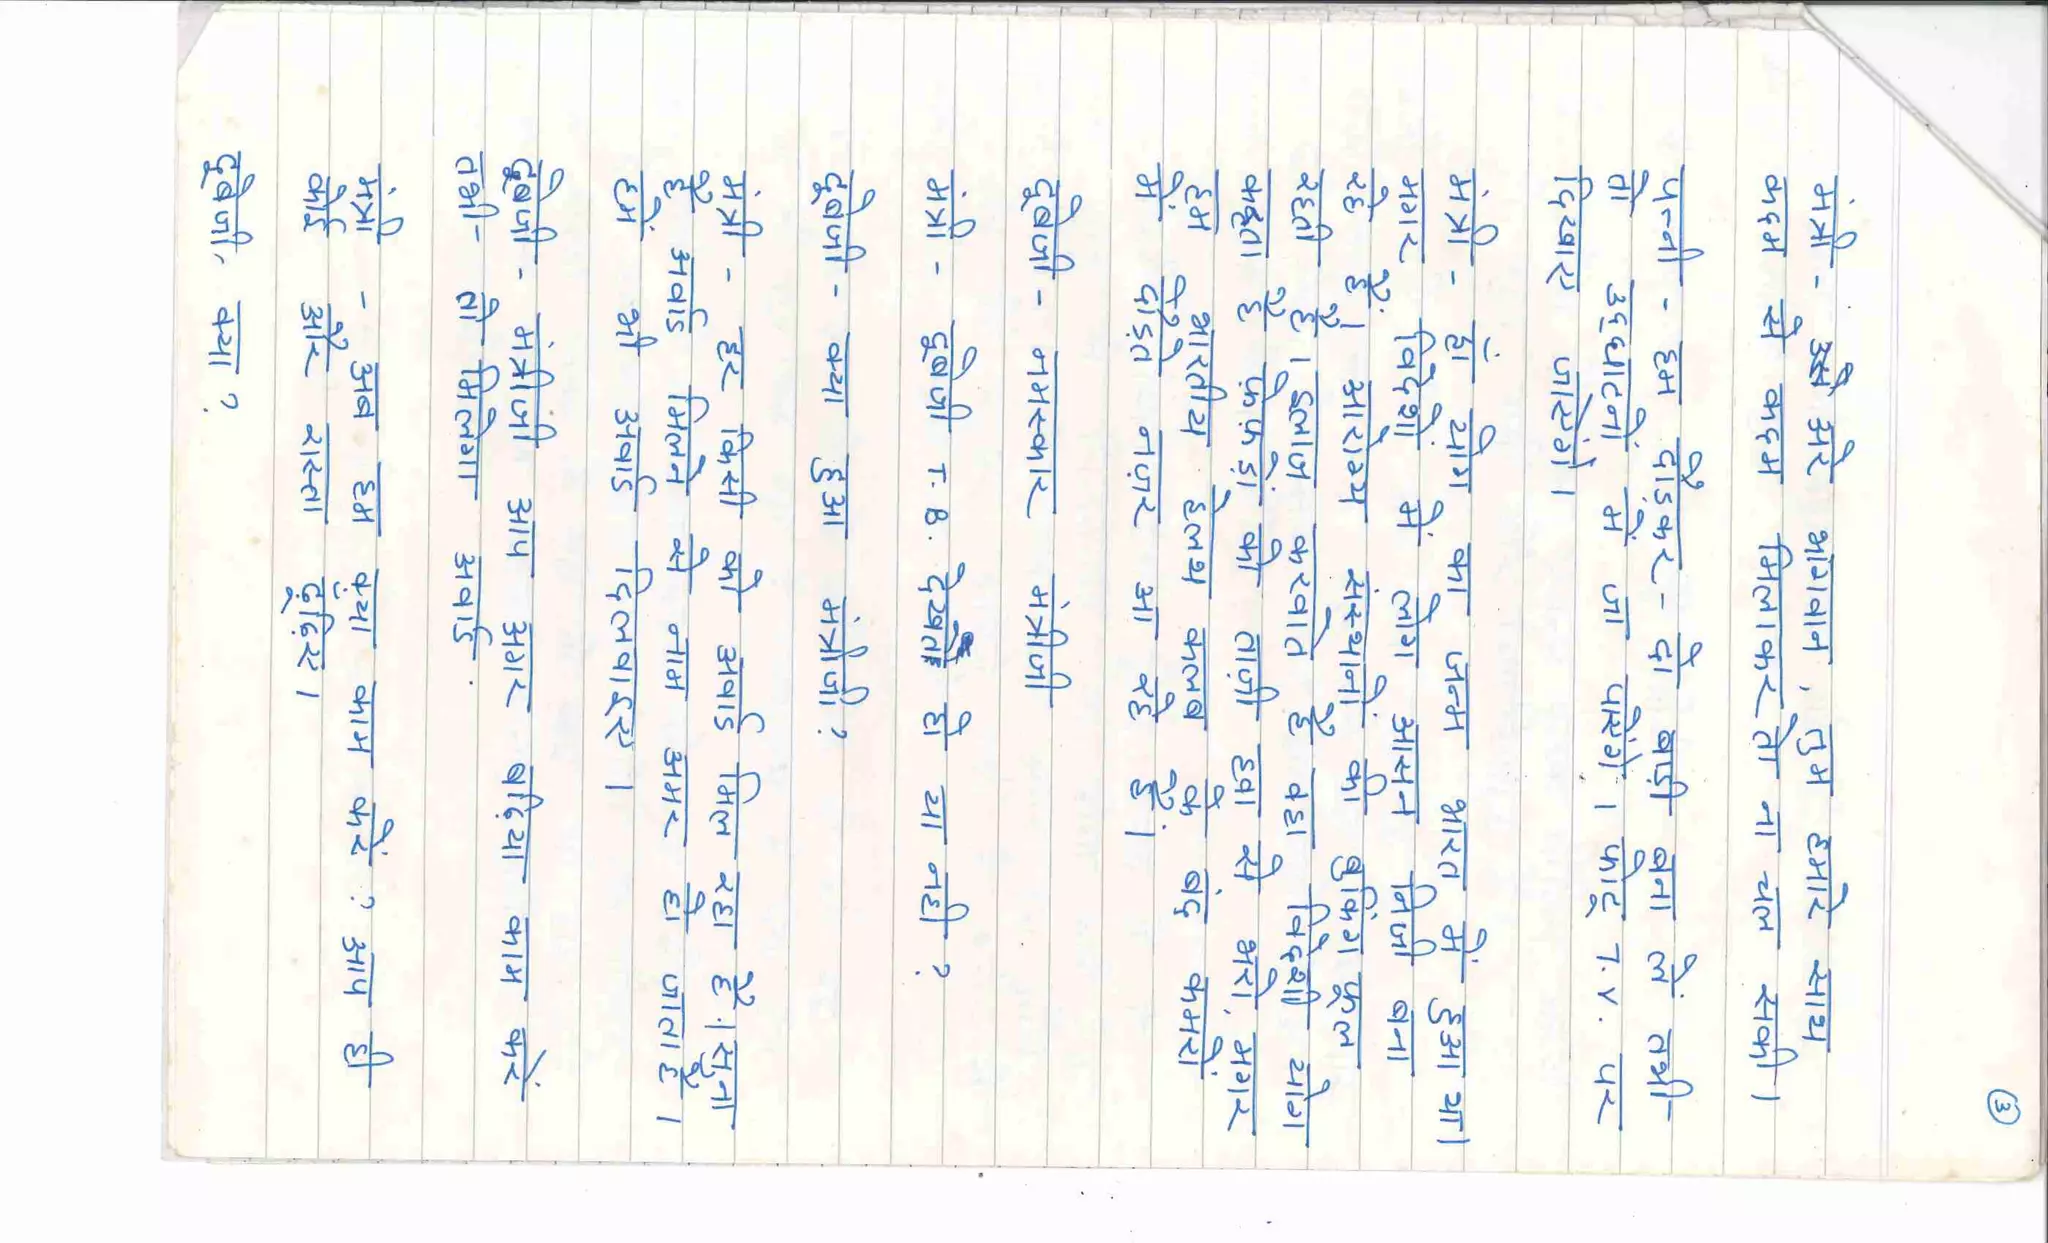 ③
मंत्री - अरे भगवान, तुम हमारे साथ
कदम से कदम मिलाकर तो ना चल सकी।
पत्नी - हम दौडकर - दो बाड़ी बना लें तभी-
तो उद्घाटनों में जा पायेंगे। फोटू T.V. पर
दिखाए जायेंगे।
मंत्री - हां योग का जन्म भारत में हुआ था।
मगर विदेशों में लोग आसन निजी बना
रहे हैं। आरोग्य संस्थानों की बुकिंग फूल
रहती है। इलाज करवाते है वहां विदेशी योग
कहता है फेफड़ों को ताजी हवा से भरो, मगर
हम भारतीय हेल्थ क्लब के बंद कमरों
में दौड़ते नज़र आ रहे हैं।
दूबेजी - नमस्कार मंत्रीजी
मंत्री - दूबेजी T.B. देखते हो या नहीं?
दूबेजी - क्या हुआ मंत्रीजी?
मंत्री - हर किसी को अवार्ड मिल रहा है। सुना
है अवार्ड मिलने से नाम अमर हो जाता है।
हमें भी अवार्ड दिलवाइए।
दूबेजी - मंत्रीजी आप अगर बढ़िया काम करें
तभी - तो मिलेगा अवार्ड.
मंत्री - अब हम क्या काम करें? आप ही
कोई और रास्ता ढूंढिए।
दूबेजी, क्या?